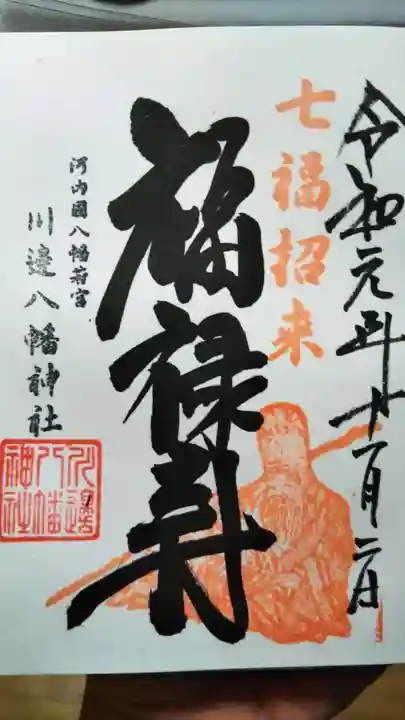 令和元年十一月二日
七福招来
福禄寿
河内國八幡若宮
川邉八幡神社
川邉八幡神社